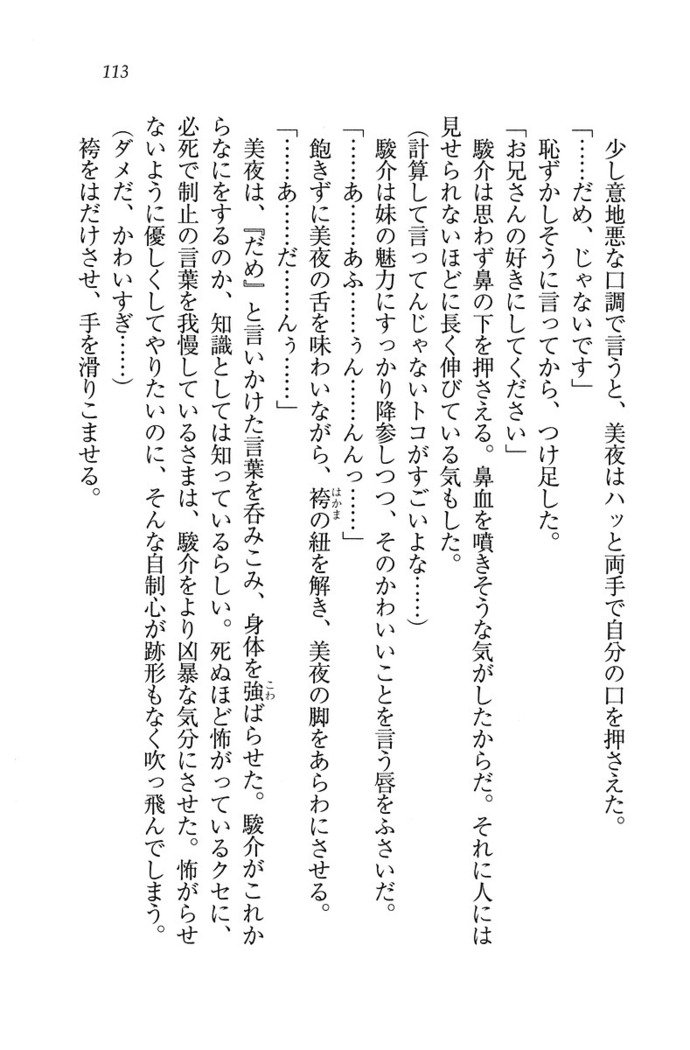 113
少し意地悪な口調で言うと、美夜はハッと両手で自分の口を押さえた。
「……だめ、じゃないです」
恥ずかしそうに言ってから、つけ足した。
「お兄さんの好きにしてください」
駿介は思わず鼻の下を押さえる。鼻血を噴きそうな気がしたからだ。それに人には
見せられないほどに長く伸びている気もした。
(計算して言ってんじゃないトコがすごいよな……)
駿介は妹の魅力にすっかり降参しつつ、そのかわいいことを言う唇をふさいだ。
「……あ……あふ……ぅん……んんっ……」
飽きずに美夜の舌を味わいながら、袴の紐を解き、美夜の脚をあらわにさせる。
はかま
「……あ……だ……んぅ……」
美夜は、『だめ』と言いかけた言葉を呑みこみ、身体を強ばらせた。駿介がこれか
こわ
らなにをするのか、知識としては知っているらしい。死ぬほど怖がっているクセに、
必死で制止の言葉を我慢しているさまは、駿介をより凶暴な気分にさせた。怖がらせ
ないように優しくしてやりたいのに、そんな自制心が跡形もなく吹っ飛んでしまう。
(ダメだ、かわいすぎ……)
袴をはだけさせ、手を滑りこませる。